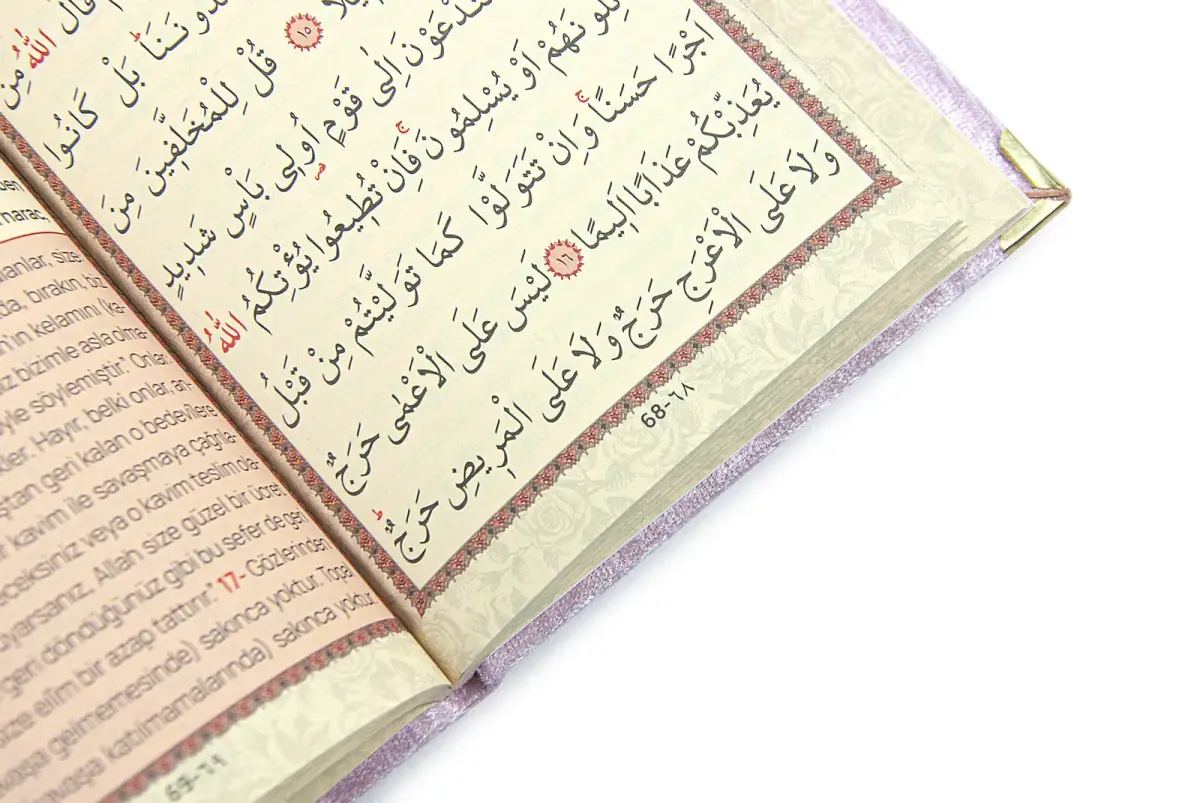 قَالَ اللّٰهُ مِنْ
بَلْ كَانُوا
١٥ قُلْ لِلْمُخَلَّفِينَ مِنَ
اِلٰى قَوْمٍ اُولِى بَاْسٍ شَدِيدٍ
اَوْ يُسْلِمُونَۚ فَاِنْ تُطِيعُوا يُؤْتِكُمُ اللّٰهُ
اَجْرًا حَسَنًاۚ وَاِنْ تَتَوَلَّوْا كَمَا تَوَلَّيْتُمْ مِنْ قَبْلُ
يُعَذِّبْكُمْ عَذَابًا اَلِيمًا ١٦ لَيْسَ عَلَى الْاَعْمٰى حَرَجٌ
وَلَا عَلَى الْاَعْرَجِ حَرَجٌ وَلَا عَلَى الْمَرِيضِ حَرَجٌۜ
68-٦٨
ben
harac,
size
bırakın, biz
kelamını (ka-
bizimle asla olma-
söylemiştir." Onlar
Hayır, belki onlar, an-
geri kalan o bedevilere
kavim ile savaşmaya çağrıla-
veya o kavim teslim da-
uyarsanız, Allah size güzel bir ücret
geri döndüğünüz gibi bu sefer de geri
size elîm bir azap tattırır." 17- Gözlerinden
gelmemesinde) sakınca yoktur. Topal
katılmamalarında) sakınca yoktur.
69-٦٩